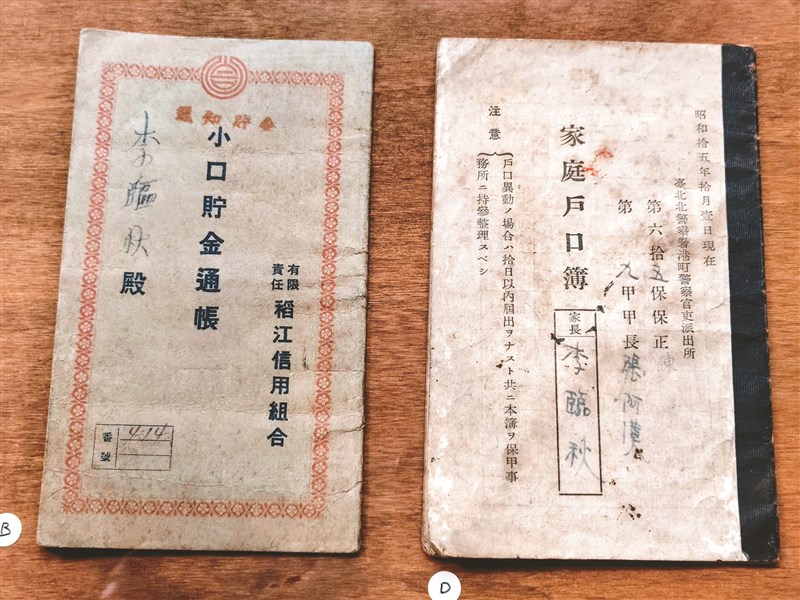 通知貯金
有限
責任
稻江信用組合
小口貯金通帳
李臨秋 殿
番號 414
B
昭和拾五年拾月壹日現在
臺北北警察署港町警察官吏派出所
第六拾五保保正
第九甲甲長張阿
家庭戶口簿
家長 李臨秋
注意
戶口異動ノ場合ハ拾日以內屆出ヲナスト共ニ本簿ヲ保甲事
務所ニ持參整理スベシ
D